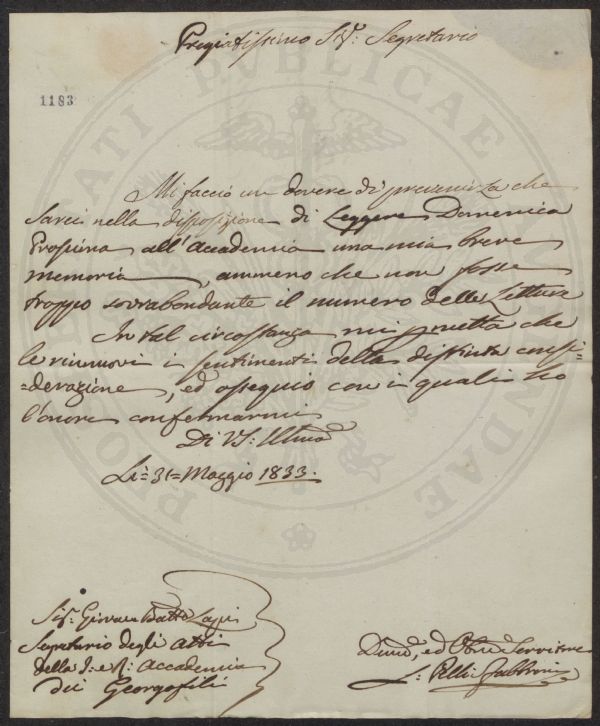 Pregiatissimo Sig: Segretario
1183
Mi faccio un dovere di prevenirla che
sarei nella disposizione di Leggere Domenica
Prossima all'Accademia una mia breve
memoria, ammeno che non fosse
troppo sovrabbondante il numero delle Letture
In tal circostanza mi permetta che
le rinnuovi i sentimenti della distinta consi=
=derazione, ed ossequio con i quali ho
l'onore confermarmi
Di VS: Illma
Li= 31= Maggio 1833.
Sig: Giovan Batta Lapi
Segretario degli Atti
della I: e R: Accademia
dei Georgofili
Devmo, ed Obbmo Servitore
L: Pelli Fabbroni
PUBLICAE